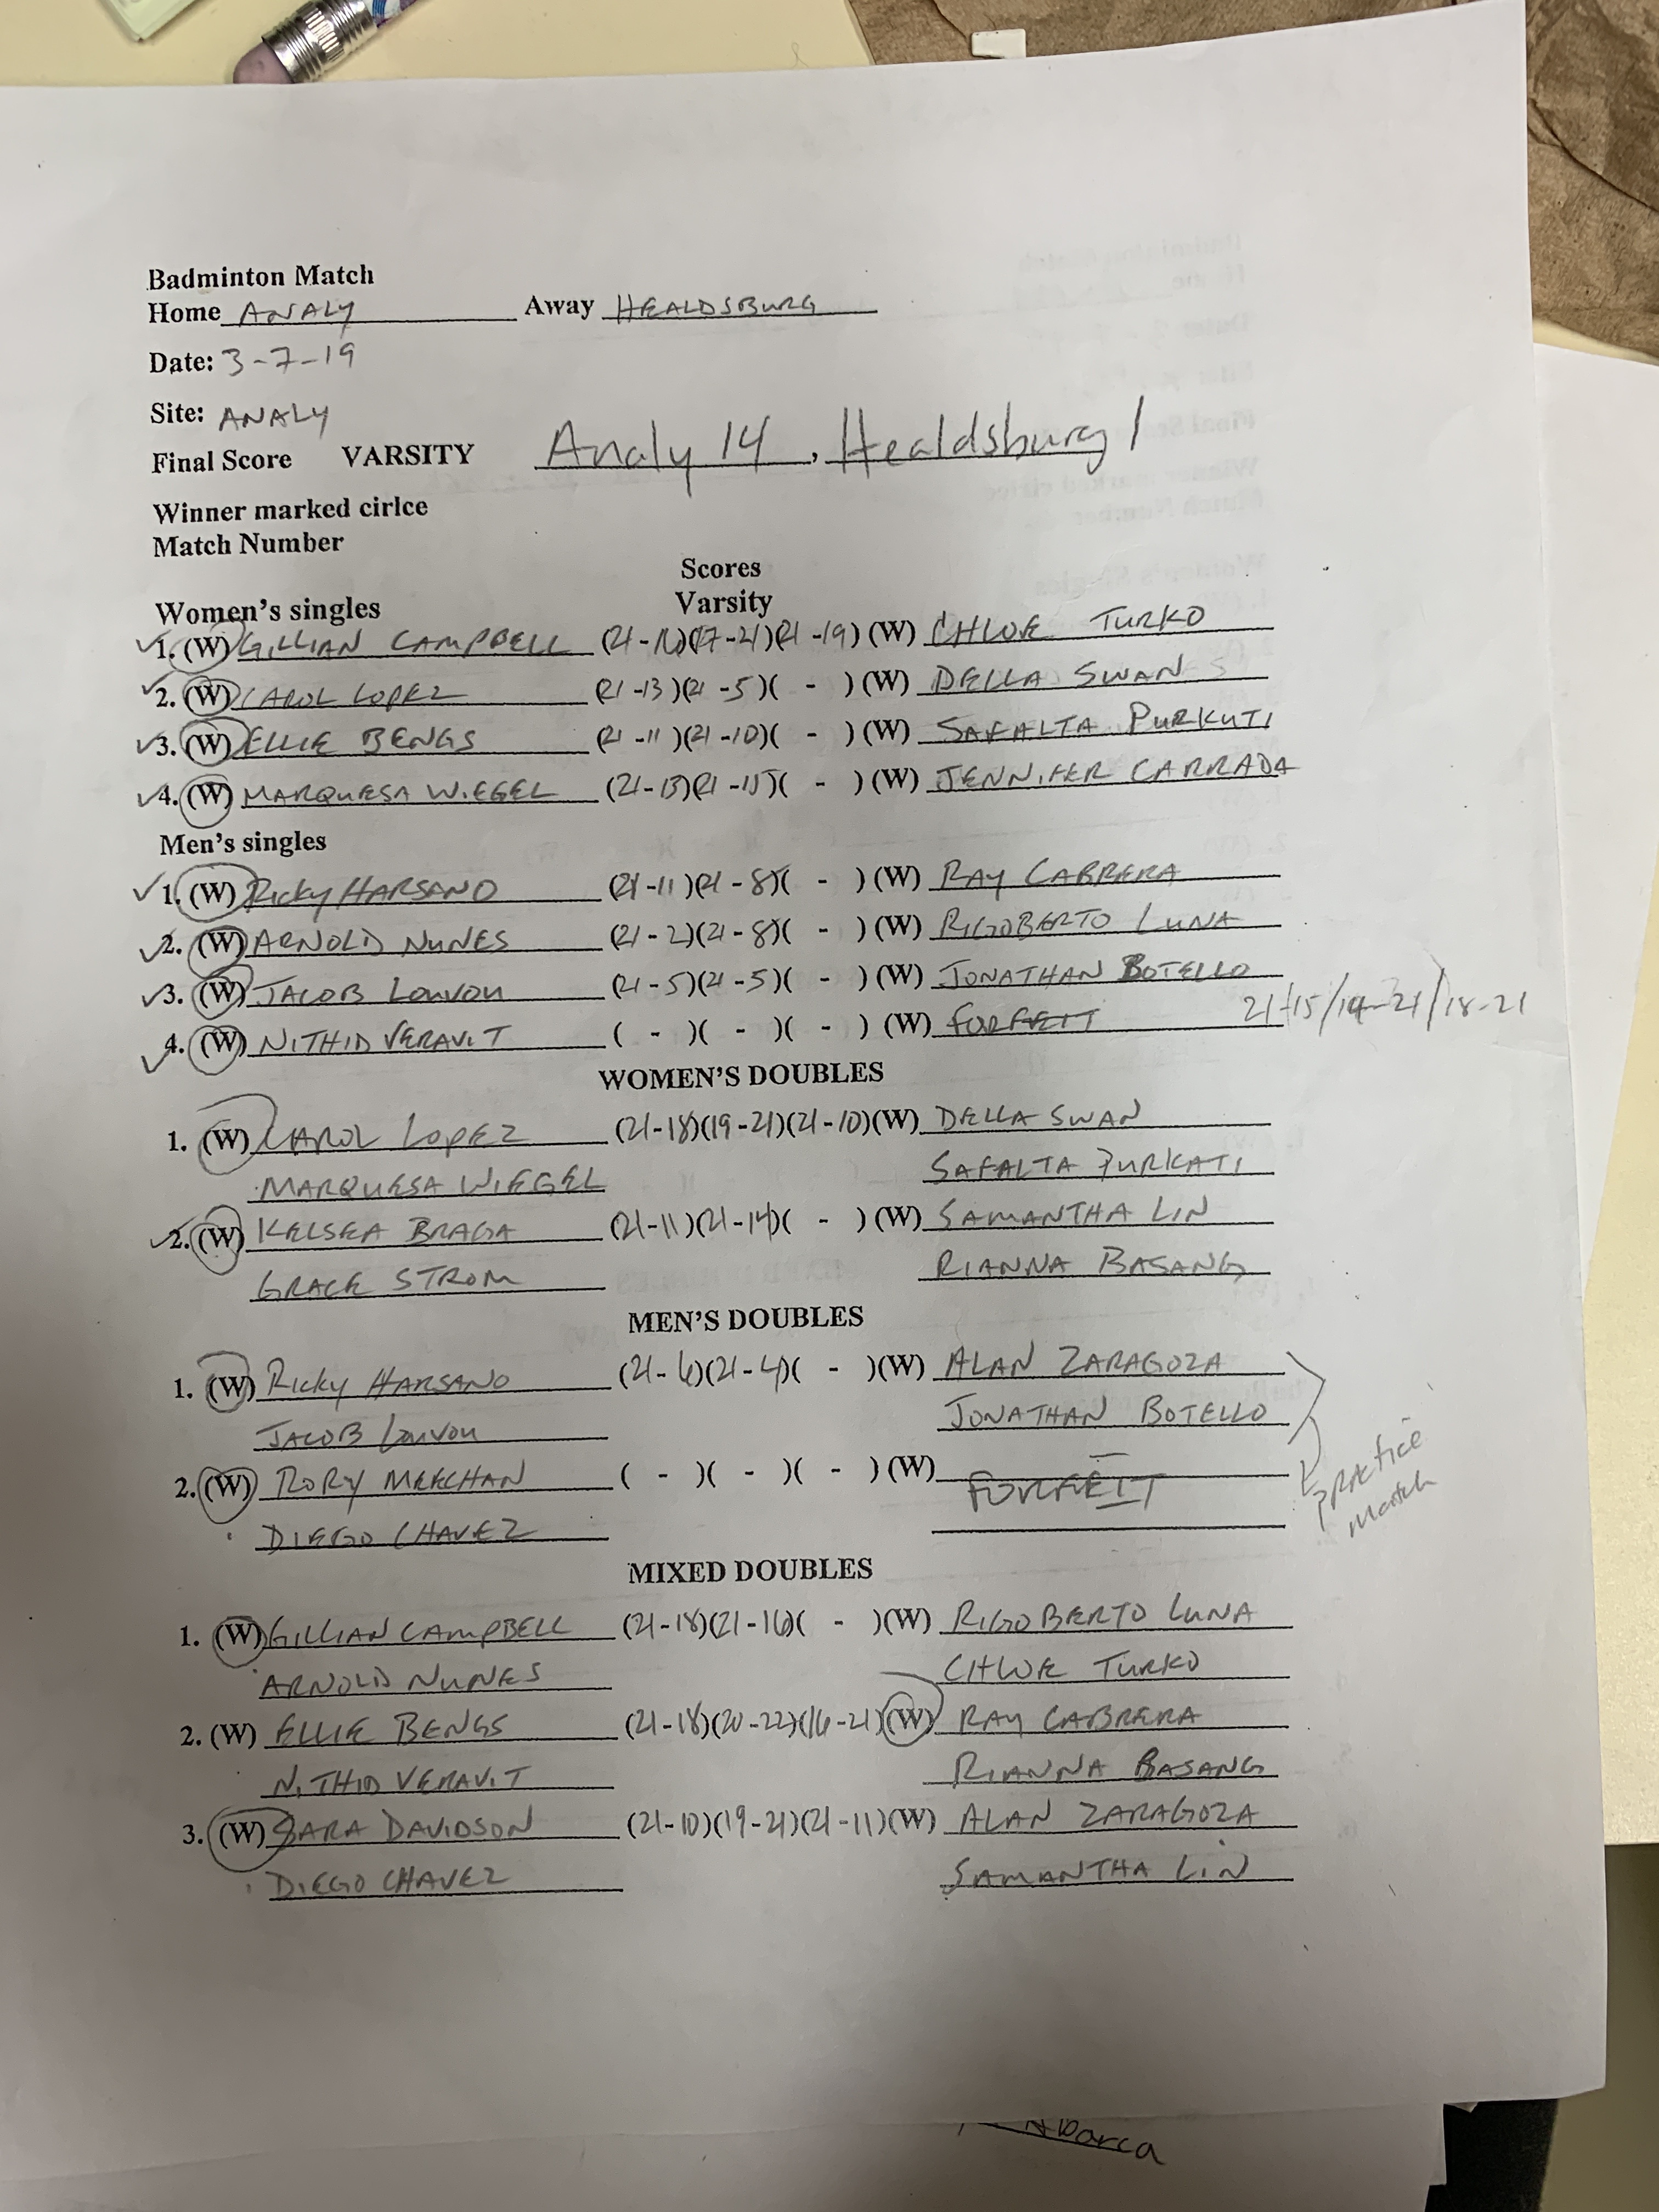 Badminton Match
Home ANALY Away HEALDSBURG
Date: 3-7-19
Site: ANALY
Final Score VARSITY Analy 14, Healdsburg 1
Winner marked cirlce
Match Number
Scores
Women's singles Varsity
1. (W) GILLIAN CAMPBELL (21-16)(17-21)(21-19) (W) CHLOE TURKO
2. (W) CAROL LOPEZ (21-13)(21-5)( - ) (W) DELLA SWAN
3. (W) ELLIE BENGS (21-11)(21-10)( - ) (W) SAFALTA PURKUTI
4. (W) MARQUESA WIEGEL (21-13)(21-15)( - ) (W) JENNIFER CARRADA
Men's singles
1. (W) RICKY HARSANO (21-11)(21-8)( - ) (W) RAY CABRERA
2. (W) ARNOLD NUNES (21-2)(21-8)( - ) (W) RIGOBERTO LUNA
3. (W) JACOB LOUVOU (21-5)(21-5)( - ) (W) JONATHAN BOTELLO
4. (W) NITHID VERAVIT ( - )( - )( - ) (W) FORFEIT 21-15/14-21/18-21
WOMEN'S DOUBLES
1. (W) CAROL LOPEZ (21-18)(19-21)(21-10)(W) DELLA SWAN
MARQUESA WIEGEL SAFALTA PURKATI
2. (W) KELSEA BRAGA (21-11)(21-14)( - ) (W) SAMANTHA LIN
GRACE STROM RIANNA BASANG
MEN'S DOUBLES
1. (W) RICKY HARSANO (21-6)(21-4)( - )(W) ALAN ZARAGOZA
JACOB LOUVOU JONATHAN BOTELLO
2. (W) RORY MEECHAN ( - )( - )( - ) (W) FORFEIT practice
DIEGO CHAVEZ match
MIXED DOUBLES
1. (W) GILLIAN CAMPBELL (21-18)(21-16)( - )(W) RIGOBERTO LUNA
ARNOLD NUNES CHLOE TURKO
2. (W) ELLIE BENGS (21-18)(20-22)(16-21)(W) RAY CABRERA
NITHID VERAVIT RIANNA BASANG
3. (W) SARA DAVIDSON (21-10)(19-21)(21-11)(W) ALAN ZARAGOZA
DIEGO CHAVEZ SAMANTHA LIN